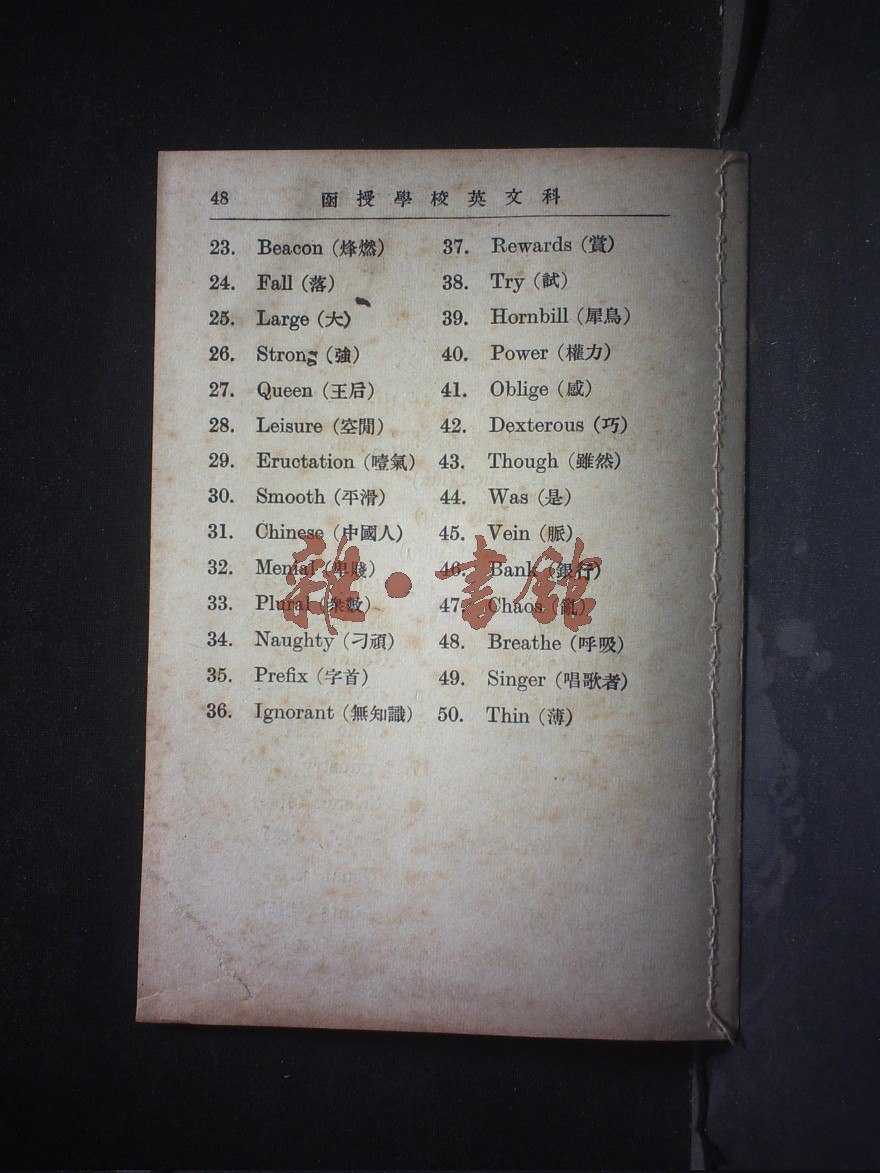 48 函授學校英文科
23. Beacon (烽燃)
24. Fall (落)
25. Large (大)
26. Strong (強)
27. Queen (王后)
28. Leisure (空閒)
29. Eructation (噎氣)
30. Smooth (平滑)
31. Chinese (中國人)
32. Menial (卑賤)
33. Plural (衆數)
34. Naughty (刁頑)
35. Prefix (字首)
36. Ignorant (無知識)
37. Rewards (賞)
38. Try (試)
39. Hornbill (犀鳥)
40. Power (權力)
41. Oblige (感)
42. Dexterous (巧)
43. Though (雖然)
44. Was (是)
45. Vein (脈)
46. Bank (銀行)
47. Chaos (亂)
48. Breathe (呼吸)
49. Singer (唱歌者)
50. Thin (薄)
雜·書館